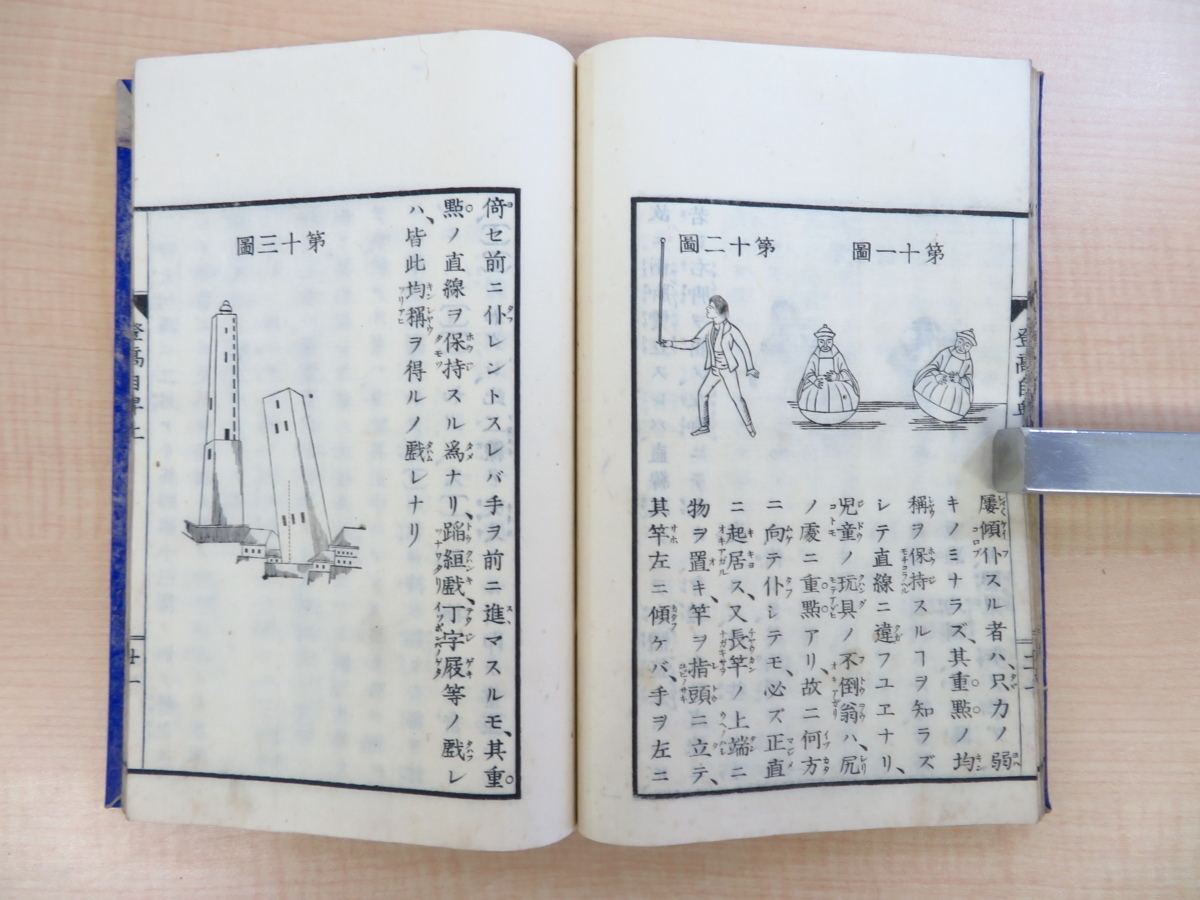 第十一圖
第十二圖
屢傾仆スル者ハ、只力ノ弱
キノミナラズ、其重點ノ均
稱ヲ保持スルヿヲ知ラズ
シテ直線ニ違フユヱナリ、
児童ノ玩具ノ不倒翁ハ、尻
ノ處ニ重點アリ、故ニ何方
ニ向テ仆シテモ、必ズ正直
ニ起居ス、又長竿ノ上端ニ
物ヲ置キ、竿ヲ指頭ニ立テ、
其竿左ニ傾ケバ、手ヲ左ニ
倚セ前ニ仆レントスレバ手ヲ前ニ進マスルモ、其重
點ノ直線ヲ保持スル爲ナリ、蹈絙戲、丁字屐等ノ戲レ
ハ、皆此均稱ヲ得ルノ戲レナリ
第十三圖
登高自卑上